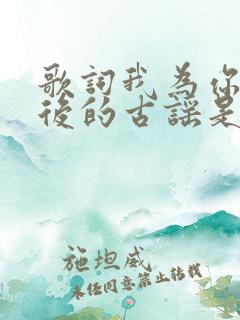 歌詞我為你
後的古謠是
施坦威
未任同意禁止转载